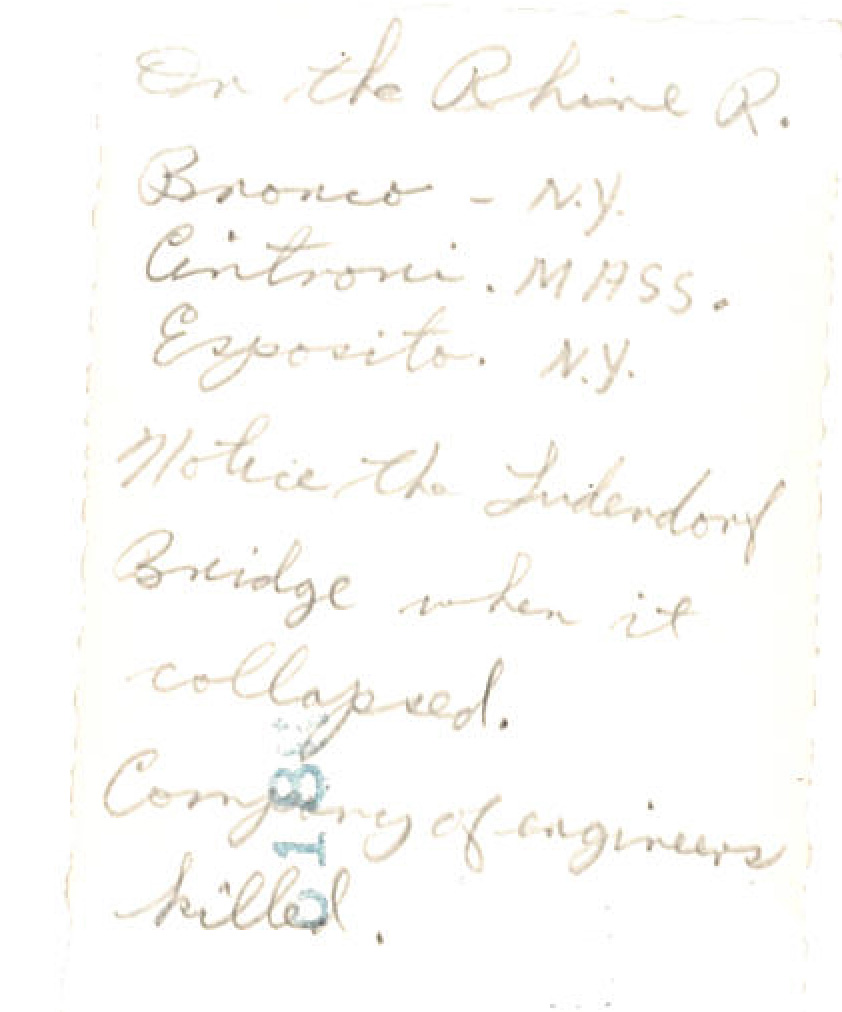 On the Rhine R.
Bronco - N.Y.
Cintroni. MASS.
Esposito. N.Y.
Notice the Luderdorf
Bridge when it
collapsed.
Company of engineers
killed.